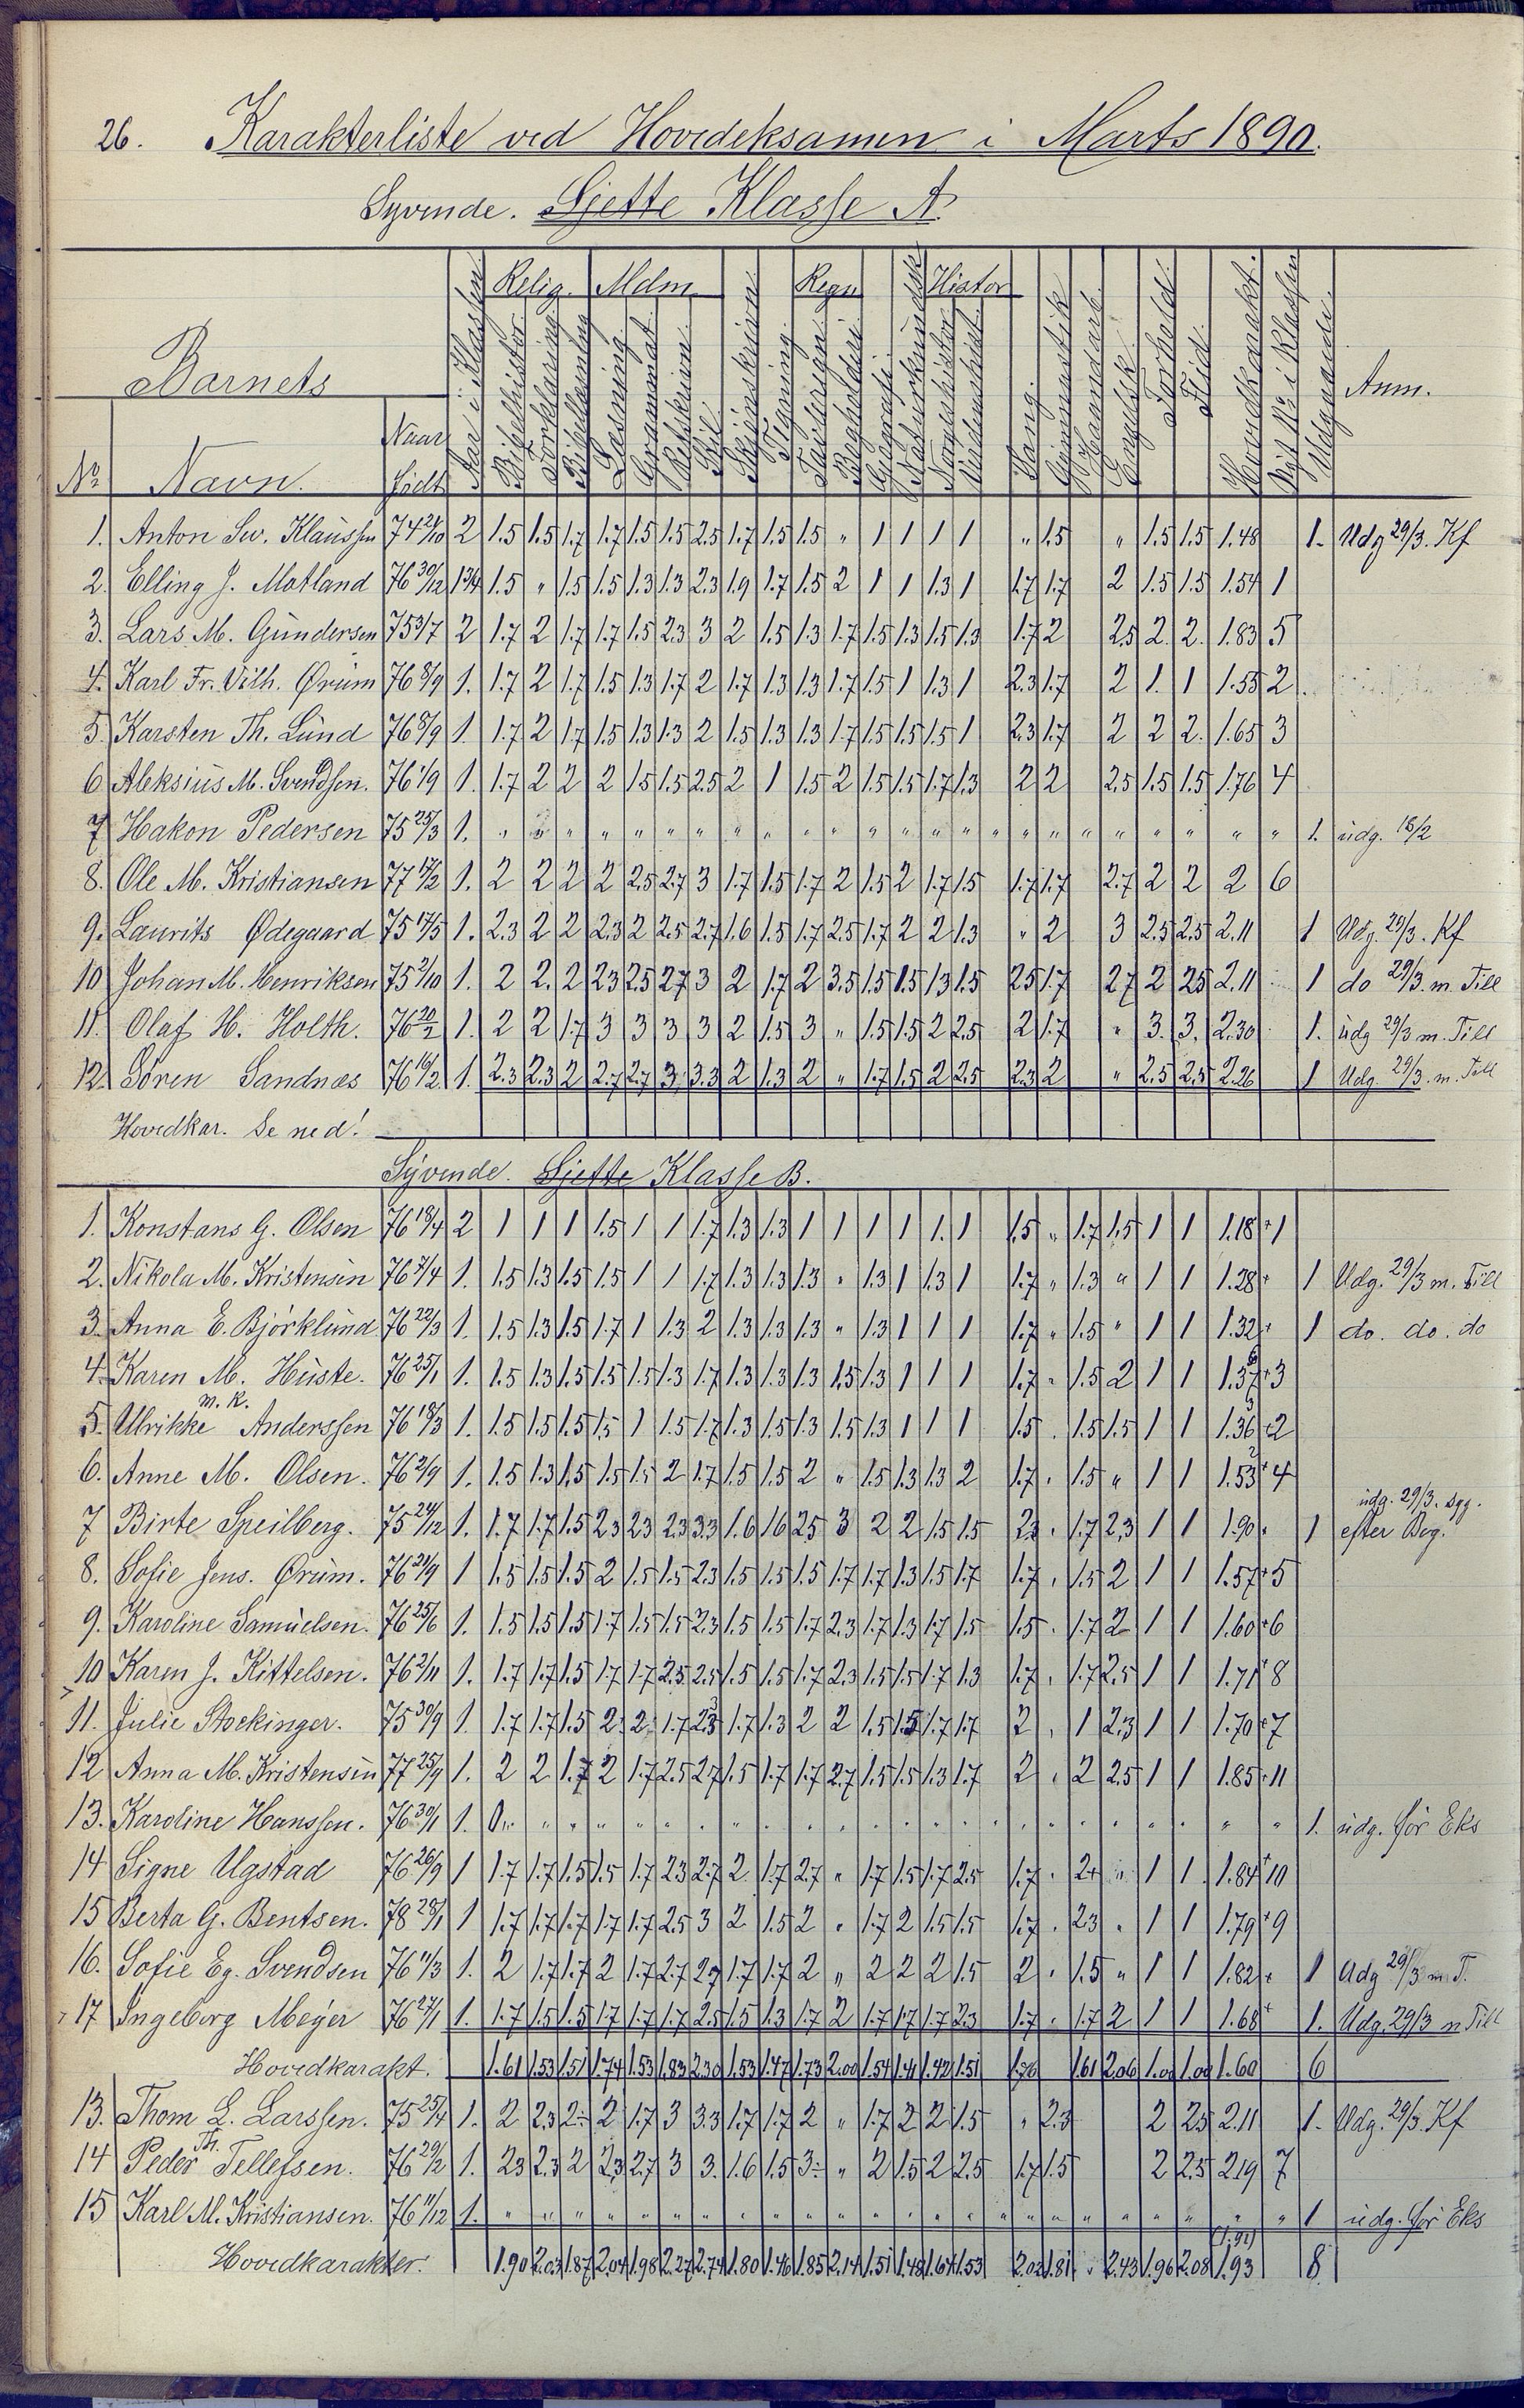 26. Karakterliste ved Hovedeksamen i Marts 1890.
Syvende. Sjette Klasse A.
Barnets
No Navn. Naar født Aar i Klassen Relig. Bibelhistor. Forklaring Bibellæsning Mdm. Læsning Grammat. Retskrivn. Stil Skjønskrivn. Tegning. Regn Tavleregn. Bogholderi Geografi. Naturkundsk. Histor Norgeshistor Verdenshist. Sang. Gymnastik Haandarb. Engelsk Forhold. Flid. Hovedkarakt. Nyt No i Klassen Udgaaede. Anm.
1. Anton Sev. Klaussen 74 21/10 2 1.5 1.5 1.7 1.7 1.5 1.5 2.5 1.7 1.5 1.5 " 1 1 1 1 " 1.5 " 1.5 1.5 1.48 1. Udg 29/3. Kf
2. Elling J. Motland 76 30/12 1 3/4 1.5 " 1.5 1.5 1.3 1.3 2.3 1.9 1.7 1.5 2 1 1 1.3 1 1.7 1.7 2 1.5 1.5 1.54 1
3. Lars M. Gundersen 75 3/7 2 1.7 2 1.7 1.7 1.5 2.3 3 2 1.5 1.3 1.7 1.5 1.3 1.5 1.3 1.7 2 2.5 2. 2. 1.83 5
4. Karl Fr. Vilh. Ørum 76 8/9 1. 1.7 2 1.7 1.5 1.3 1.7 2 1.7 1.3 1.3 1.7 1.5 1 1.3 1 2.3 1.7 2 1. 1 1.55 2.
5. Karsten Th. Lund 76 8/9 1. 1.7 2 1.7 1.5 1.3 1.3 2 1.5 1.3 1.3 1.7 1.5 1.5 1.5 1 2.3 1.7 2 2 2. 1.65 3
6 Aleksius M. Svendsen. 76 1/9 1. 1.7 2 2 2 1.5 1.5 2.5 2 1 1.5 2 1.5 1.5 1.7 1.3 2 2 2.5 1.5 1.5 1.76 4
7 Hakon Pedersen 75 25/3 1. " " " " " " " " " " " " " " " " " " " " " " " " 1. udg. 18/2
8. Ole M. Kristiansen 77 17/2 1. 2 2 2 2 2.5 2.7 3 1.7 1.5 1.7 2 1.5 2 1.7 1.5 1.7 1.7 2.7 2 2 2 6
9. Laurits Ødegaard 75 17/5 1. 2.3 2 2 2.3 2 2.5 2.7 1.6 1.5 1.7 2.5 1.7 2 2 1.3 " 2 3 2.5 2.5 2.11 1 Udg. 29/3. Kf
10 Johan M. Henriksen 75 2/10 1. 2 2. 2 2.3 2.5 2.7 3 2 1.7 2 3.5 1.5 1.5 1.3 1.5 2.5 1.7 2.7 2 2.5 2.11 1 do 29/3. m. Till
11. Olaf H. Holth. 76 20/2 1. 2 2 1.7 3 3 3 3 2 1.5 3 " 1.5 1.5 2 2.5 2 1.7 " 3. 3. 2.30 1. udg 29/3 m. Till
12. Søren Sandnæs 76 16/2 1. 2.3 2.3 2 2.7 2.7 3 3.3 2 1.3 2 " 1.7 1.5 2 2.5 2.3 2 " 2.5 2.5 2.26 1 Udg. 29/3. m. Till
Hovedkar. Se ned!
Syvende. Sjette Klasse B.
1. Konstans G. Olsen 76 18/4 2 1 1 1 1.5 1 1 1.7 1.3 1.3 1 1 1 1 1. 1 1.5 " 1.7 1.5 1 1 1.18 + 1
2. Nikola M. Kristensen 76 7/4 1. 1.5 1.3 1.5 1.5 1 1 1.7 1.3 1.3 1.3 " 1.3 1 1.3 1 1.7 " 1.3 " 1 1 1.28 + 1 Udg. 29/3 m. Till
3. Anna E. Bjørklund 76 22/3 1. 1.5 1.3 1.5 1.7 1 1.3 2 1.3 1.3 1.3 " 1.3 1 1 1 1.7 " 1.5 " 1 1 1.32 + 1 do. do. do
4. Karen M. Huste. 76 25/1 1. 1.5 1.3 1.5 1.5 1.5 1.3 1.7 1.3 1.3 1.3 1.5 1.3 1 1 1 1.7 " 1.5 2 1 1 1.37 + 3
m. K.
5. Ulrikke Anderssen 76 18/3 1. 1.5 1.5 1.5 1.5 1 1.5 1.7 1.3 1.5 1.3 1.5 1.3 1 1 1 1.5 . 1.5 1.5 1 1 1.36 + 2
6. Anne M. Olsen. 76 2/9 1. 1.5 1.3 1.5 1.5 1.5 2 1.7 1.5 1.5 2 " 1.5 1.3 1.3 2 1.7 . 1.5 " 1 1 1.53 + 4
udg. 29/3.
7 Birte Speilberg. 75 24/12 1. 1.7 1.7 1.5 2.3 2.3 2.3 3.3 1.6 1.6 2.5 3 2 2 1.5 1.5 2.3 . 1.7 2.3 1 1 1.90 . 1 efter Beg.
8. Sofie Jens. Ørum. 76 21/9 1 1.5 1.5 1.5 2 1.5 1.5 2.3 1.5 1.5 1.5 1.7 1.7 1.3 1.5 1.7 1.7 . 1.5 2 1 1 1.57 + 5
9. Karoline Samuelsen. 76 25/6 1. 1.5 1.5 1.5 1.7 1.5 1.5 2.3 1.5 1.5 1.7 2.3 1.7 1.3 1.7 1.5 1.5 . 1.7 2 1 1 1.60 + 6
10 Karen J. Kittelsen. 76 2/11 1. 1.7 1.7 1.5 1.7 1.7 2.5 2.5 1.5 1.5 1.7 2.3 1.5 1.5 1.7 1.3 1.7 . 1.7 2.5 1 1 1.71 + 8
11. Julie Stockinger. 75 30/9 1. 1.7 1.7 1.5 2. 2. 1.7 2.3 1.7 1.3 2 2 1.5 1.5 1.7 1.7 2 . 1 2.3 1 1 1.70 + 7
12 Anna M. Kristensen 77 25/9 1. 2 2 1.7 2 1.7 2.5 2.7 1.5 1.7 1.7 2.7 1.5 1.5 1.3 1.7 2 . 2 2.5 1 1 1.85 + 11
13. Karoline Hanssen. 76 30/1 1. 0 " " " " " " " " " " " " " " " " " " " " " " 1. udg. før Eks
14 Signe Ugstad 76 26/9 1 1.7 1.7 1.5 1.5 1.7 2.3 2.7 2 1.7 2.7 " 1.7 1.5 1.7 2.5 1.7 . 2+ " 1 1 1.84 + 10
15 Berta G. Bentsen. 78 28/1 1 1.7 1.7 1.7 1.7 1.7 2.5 3 2 1.5 2 " 1.7 2 1.5 1.5 1.7 . 2.3 " 1 1 1.79 + 9
16. Sofie Eg. Svendsen 76 11/3 1. 2 1.7 1.7 2 1.7 2.7 2.7 1.7 1.7 2 " 2 2 2 1.5 2 . 1.5 " 1 1 1.82 + 1 Udg 29/3 m T.
17 Ingeborg Meyer 76 27/1 1. 1.7 1.5 1.5 1.7 1.7 1.7 2.5 1.5 1.3 1.7 2 1.7 1.7 1.7 2.3 1.7 . 1.7 2 1 1 1.68 + 1. Udg. 29/3 m Till
Hovedkarakt. 1.61 1.53 1.51 1.74 1.53 1.83 2.30 1.53 1.47 1.73 2.00 1.54 1.41 1.42 1.51 1.76 1.61 2.06 1.00 1.00 1.60 6
13. Thom L. Larssen. 75 25/4 1. 2 2.3 2÷ 2 1.7 3 3.3 1.7 1.7 2 " 1.7 2 2 1.5 " 2.3 2 2.5 2.11 1. Udg. 29/3. Kf
Th.
14 Peder Tellefsen. 76 29/2 1. 2.3 2.3 2 2.3 2.7 3 3. 1.6 1.5 3÷ " 2 1.5 2 2.5 1.7 1.5 2 2.5 2.19 7
15 Karl M. Kristiansen. 76 11/12 1. " " " " " " " " " " " " " " " " " " " " " " " " 1 udg. før Eks
(1.92)
Hovedkarakter. 1.90 2.03 1.87 2.04 1.98 2.27 2.74 1.80 1.46 1.85 2.14 1.51 1.48 1.64 1.53 2.02 1.81 " 2.43 1.96 2.08 1.93 8